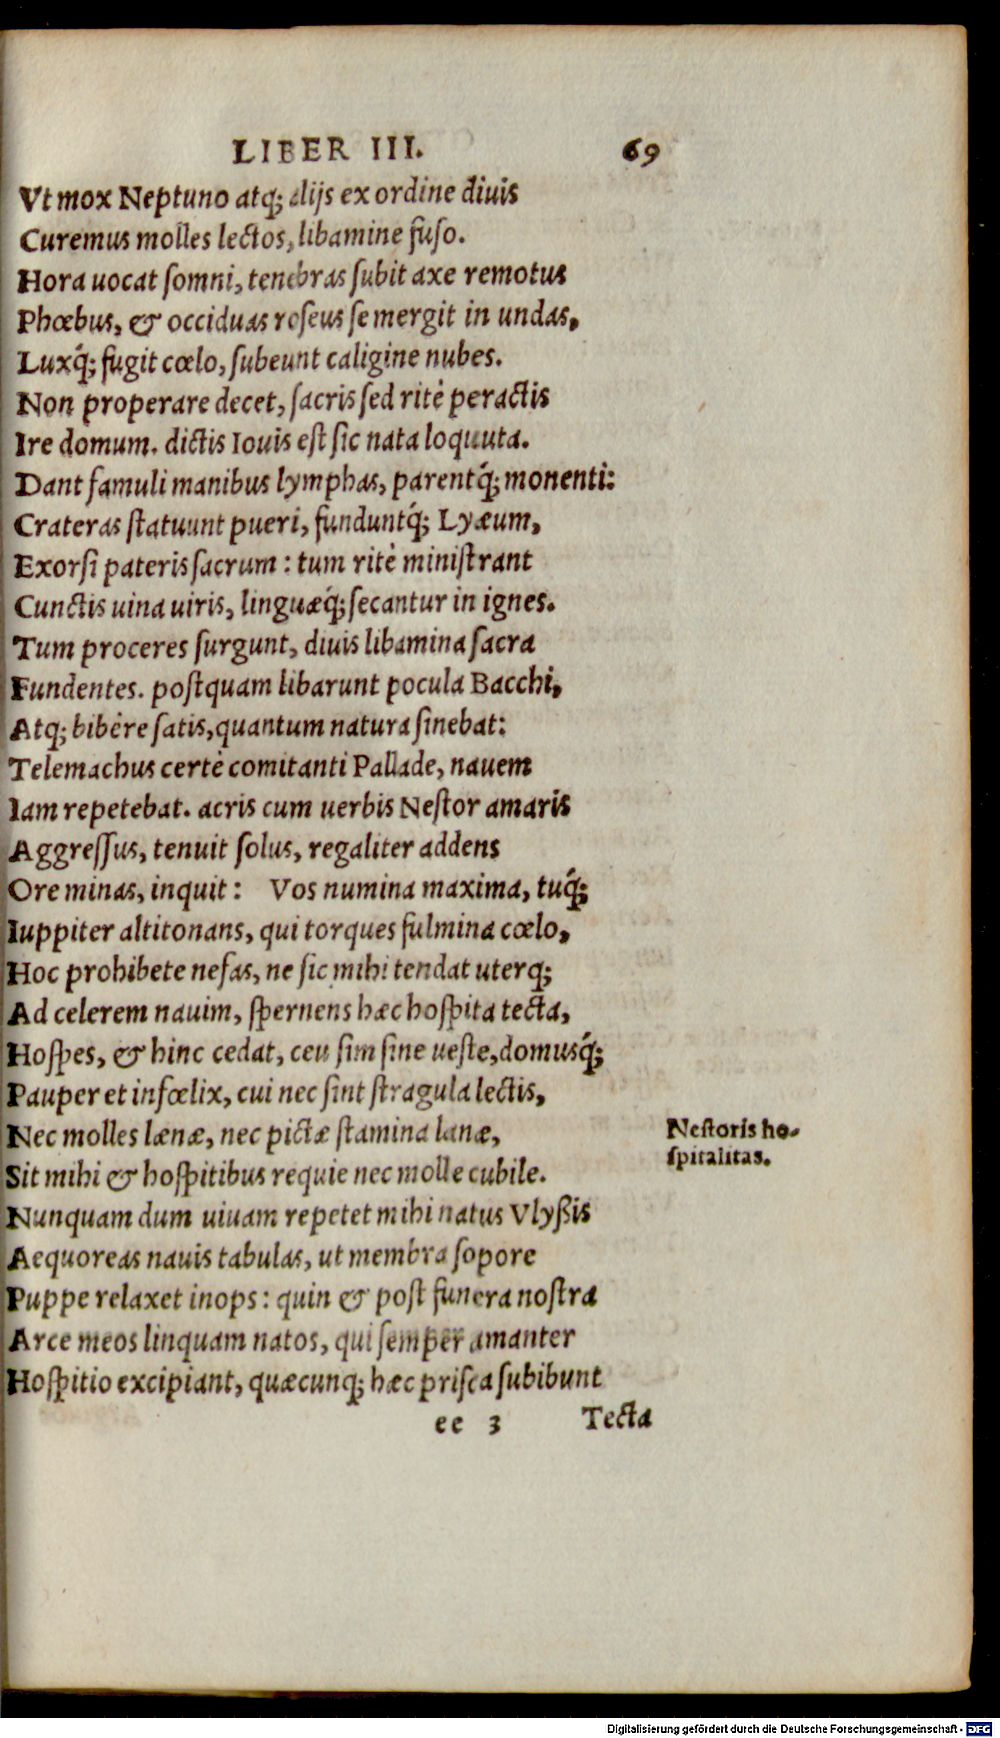 LIBER III. 69
Vt mox Neptuno atq; alijs ex ordine diuis
Curemus molles lectos, libamine fuso.
Hora uocat somni, tenebras subit axe remotus
Phœbus, & occiduas roseus se mergit in undas,
Luxq́; fugit cœlo, subeunt caligine nubes.
Non properare decet, sacris sed ritè peractis
Ire domum. dictis Iouis est sic nata loquuta.
Dant famuli manibus lymphas, parentq́; monenti:
Crateras statuunt pueri, funduntq́; Lyæum,
Exorsi pateris sacrum: tum ritè ministrant
Cunctis uina uiris, linguæq́; secantur in ignes.
Tum proceres surgunt, diuis libamina sacra
Fundentes. postquam libarunt pocula Bacchi,
Atq; bibére satis, quantum natura sinebat:
Telemachus certè comitanti Pallade, nauem
Iam repetebat. acris cum uerbis Nestor amaris
Aggressus, tenuit solus, regaliter addens
Ore minas, inquit: Vos numina maxima, tuq́;
Iuppiter altitonans, qui torques fulmina cœlo,
Hoc prohibete nefas, ne sic mihi tendat uterq;
Ad celerem nauim, spernens hæc hospita tecta,
Hospes, & hinc cedat, ceu sim sine ueste, domusq́;
Pauper et infœlix, cui nec sint stragula lectis,
Nec molles lænæ, nec pictæ stamina lanæ,
Sit mihi & hospitibus requie nec molle cubile.
Nunquam dum uiuam repetet mihi natus Vlyßis
Aequoreas nauis tabulas, ut membra sopore
Puppe relaxet inops: quin & post funera nostra
Arce meos linquam natos, qui semper amanter
Hospitio excipiant, quæcunq; hæc prisca subibunt
Nestoris ho-
spitalitas.
ee 3 Tecta
Digitalisierung gefördert durch die Deutsche Forschungsgemeinschaft - DFG